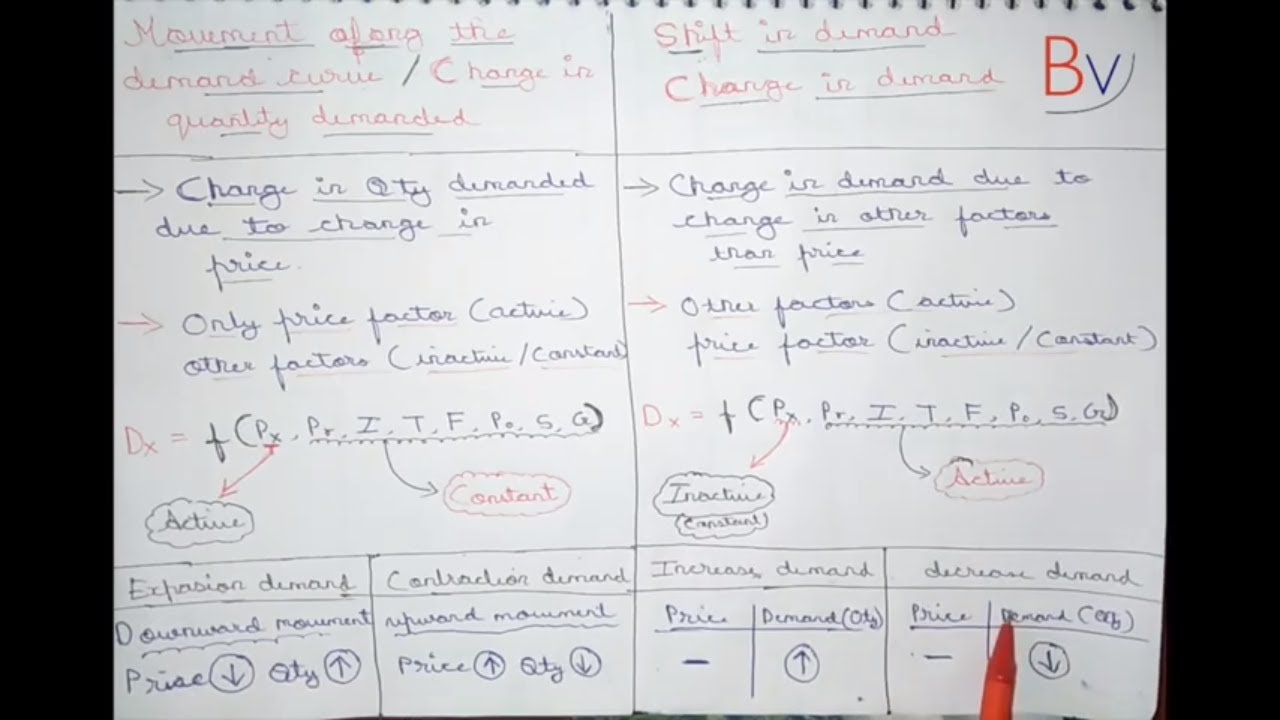 Movement along the
demand curve / Change in
quantity demanded
→ Change in Qty demanded
due to change in
price.
→ Only price factor (active)
other factors (inactive/Constant)
Dx = f (Px, Pr, I, T, F, Po, S, G)
Active
Constant
Expasion demand
Downward movement
Price ↓ Qty ↑
Contraction demand
upward movement
Price ↑ Qty ↓
Shift in demand
Change in demand
BV
→ Change in demand due to
change in other factors
than price
→ Other factors (active)
price factor (inactive/Constant)
Dx = f (Px, Pr, I, T, F, Po, S, G)
Inactive
(Constant)
Active
Increase demand
Price Demand (Qty)
– ↑
decrease demand
Price Demand (Qty)
– ↓